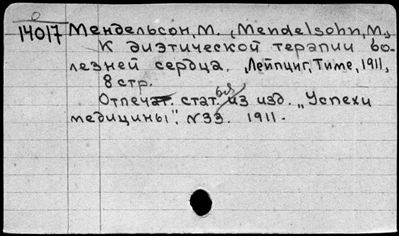 0
14017 Мендельсон, М. (Mendelsohn, M.,
К диэтической терапии бо-
лезней сердца. Лейпциг, Тиме, 1911,
8 стр.
Отпечат. стат. из изд. „Успехи
медицины". N33. 1911.